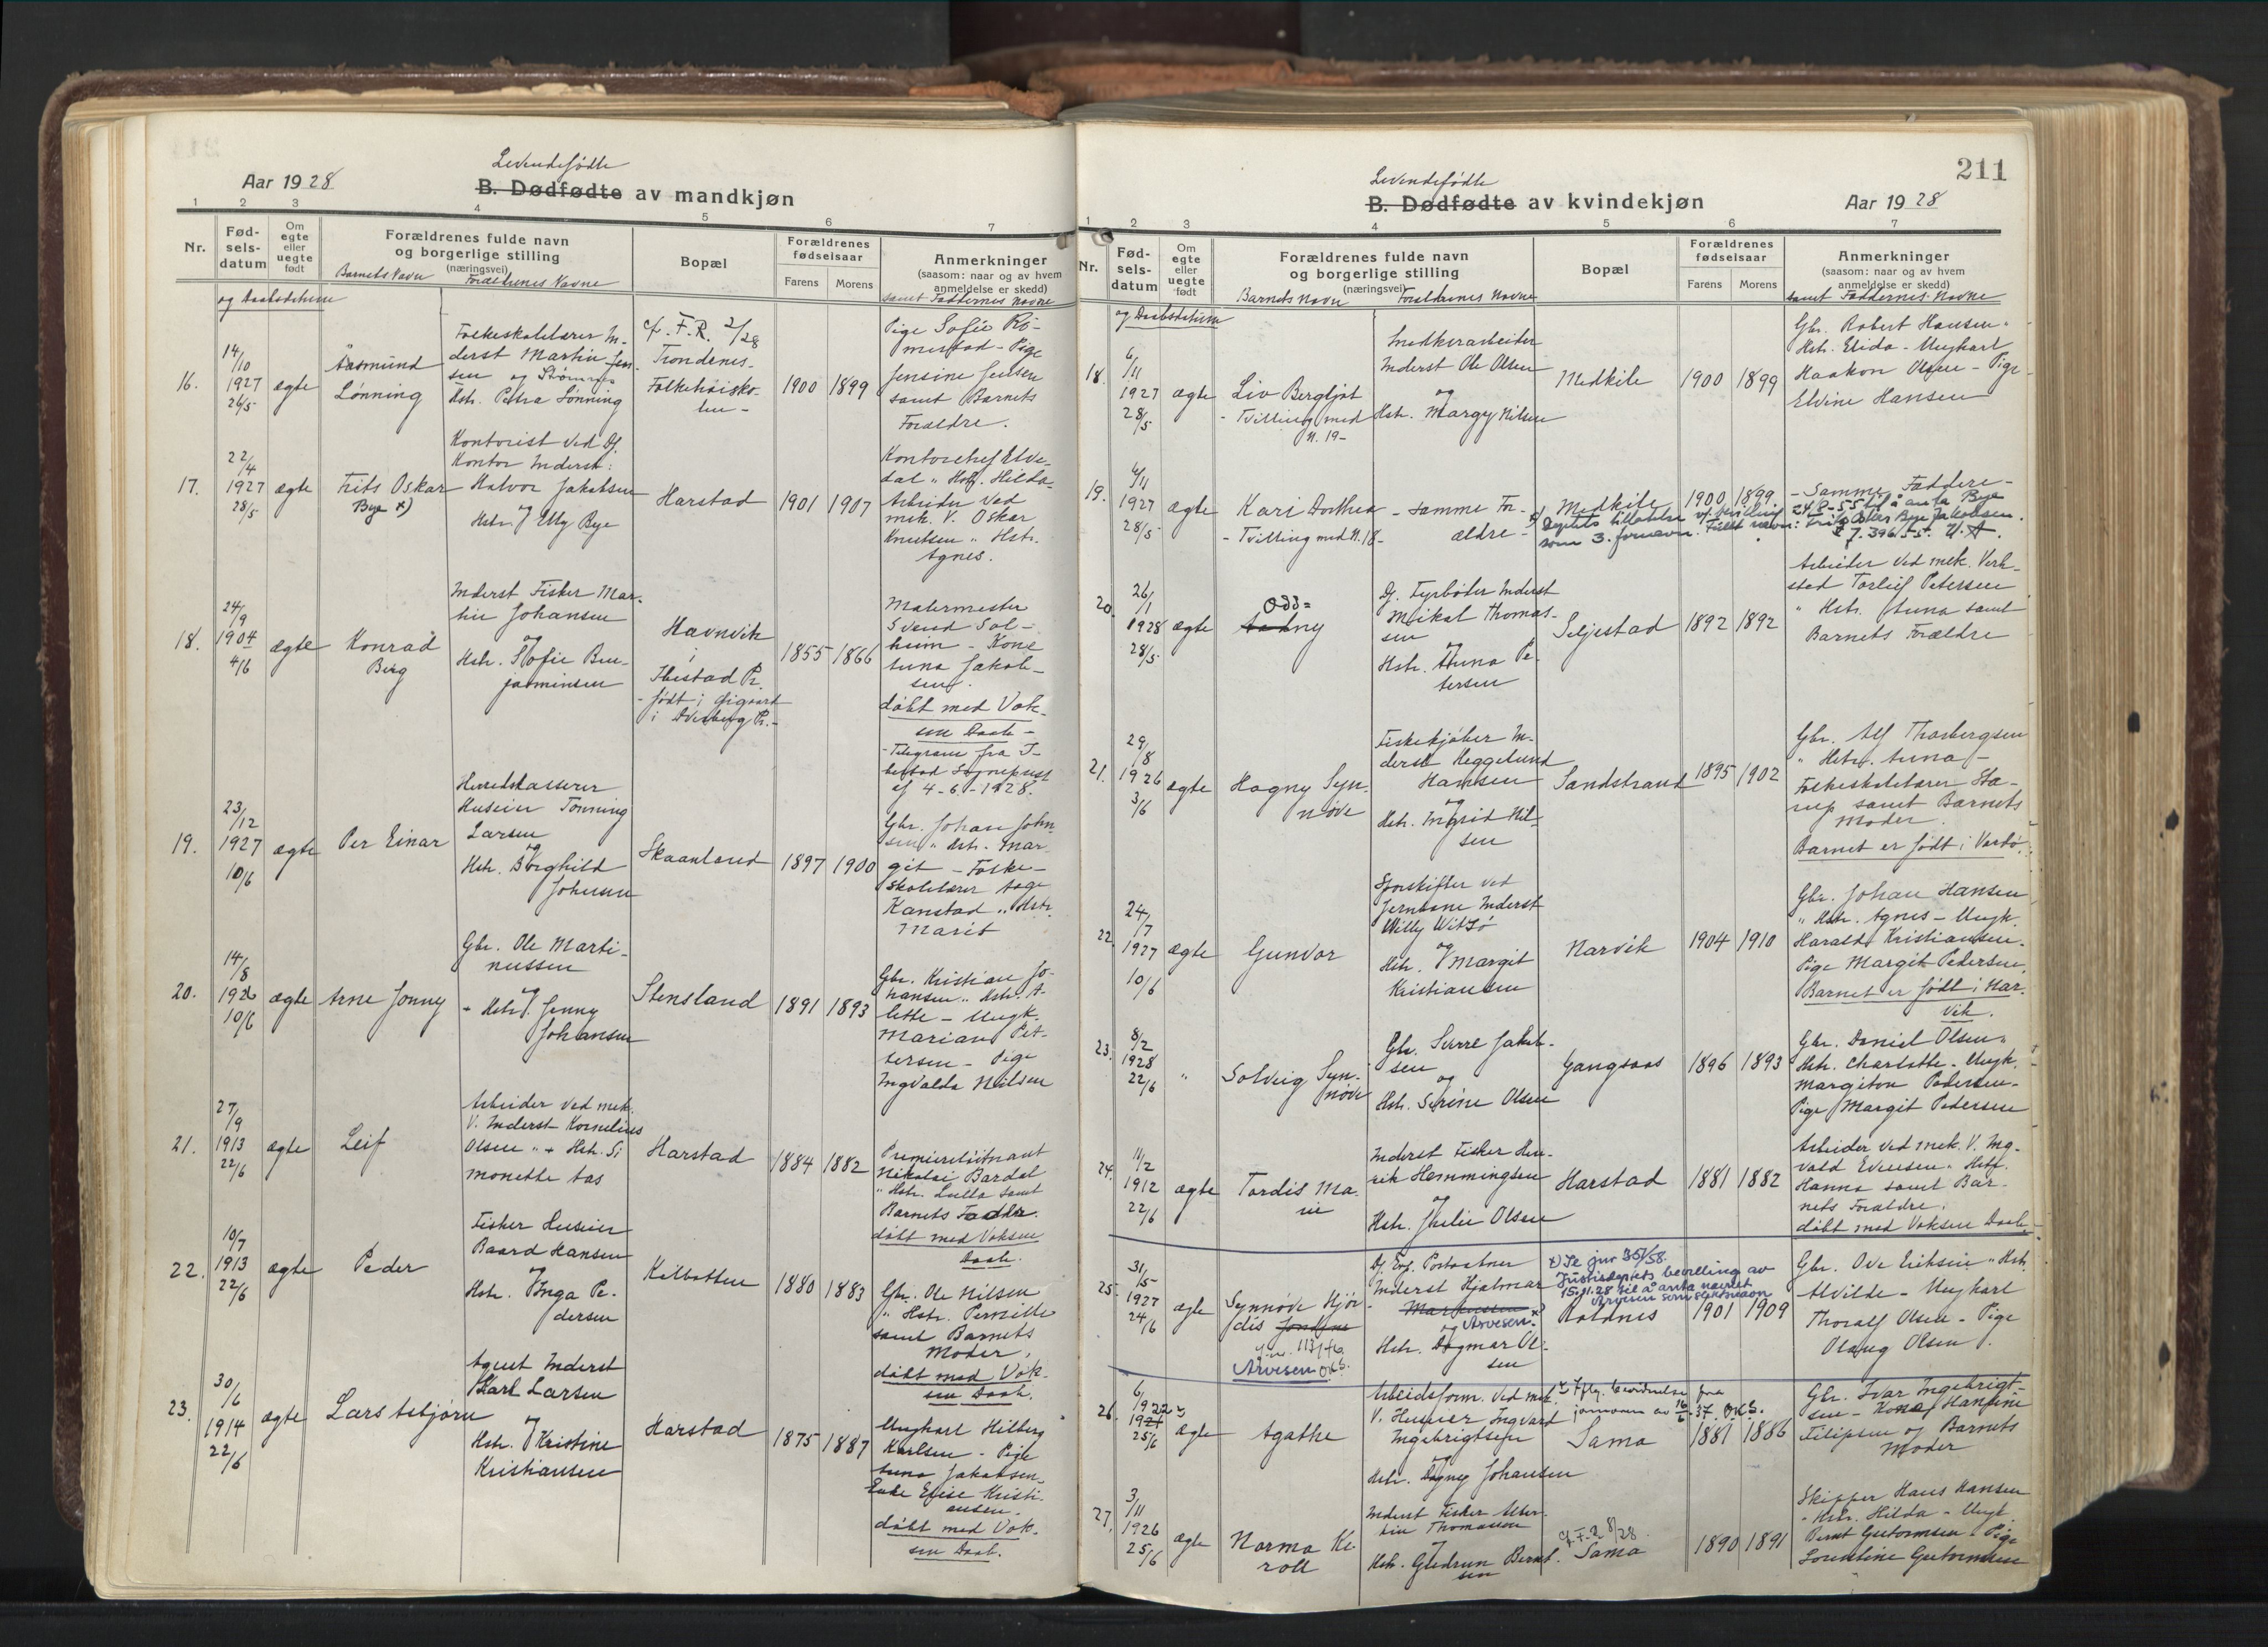 Levendefødte
Aar 1928
B. Dødfødte av mandkjøn
1 2 3 4 5 6 7
Nr.
Fød-
sels-
datum
Om
egte
eller
uegte
født
Forældrenes fulde navn
og borgerlige stilling
(næringsvei)
Barnets Navn Forældrenes Navne
Bopæl
Forældrenes
fødselsaar
Farens Morens
Anmerkninger
(saasom: naar og av hvem
anmeldelse er skedd)
samt Faddernes Navne
og Daabsdatum
16.
14/10
1927
26/5
ægte
Aasmund
Lønning
Folkeskolelærer In-
derst Martin Jen-
sen og
Hstr. Petra Lønning
cf. F.R. 2/28
Trondenes
Folkehøisko-
len -
1900 1899
Pige Sofie Rø-
merstad - Pige
Jensine Jensen
samt Barnets
Forældre.
17.
22/4
1927
28/5
ægte
Frits Oskar
Bye x)
Kontorist ved Df.
Kontor Inderst:
Halvor Jakobsen
og
Hstr. Elly Bye
Harstad
1901 1907
Kontorchef Elve-
dal " Hstr. Hilda -
Arbeider ved
mek. V. Oskar
Knutsen " Hstr.
Agnes.
18.
24/9
1904
4/6
ægte
Konrad
Berg
Inderst Fisker Mar-
tin Johansen
og
Hstr. Sofie Ben-
jaminsen
Havnvik
i
Ibestad Pr.
- født i Gigaard
i Dverberg Pr. -
1855 1866
Malermester
Svend Sol-
heim - Kone
Anna Jakob-
sen.
døbt med Vok-
sen Daab -
- Telegram fra I-
bestad Sogneprest
af 4-6-1928.
19.
23/12
1927
10/6
ægte
Per Einar
Herredskasserer
Huseier Tønning
Larsen
og
Hstr. Borghild
Johnsen
Skaanland
1897 1900
Gbr. Johan John-
sen " Hstr. Mar-
git - Folke-
skolelærer Aage
Kanstad " Hstr.
Marit
20.
14/8
1926
10/6
ægte
Arne Jonny
Gbr. Ole Marti-
nussen
og
- Hstr. Jenny
Johansen
Stensland
1891 1893
Gbr. Kristian Jo-
hansen " Hstr. A-
lette - Ungk.
Marian Pet-
tersen - Pige
Ingvalda Nilsen
21.
27/9
1913
22/6
ægte
Leif
Arbeider ved mek.
V. Inderst Kornelius
Olsen " + Hstr. Si-
monette Aas
Harstad
1884 1882
Premierløitnant
Nikolai Bardal
" Hstr. Lulla samt
Barnets Fader.
døbt med Voksen
Daab.
22.
10/7
1913
22/6
ægte
Peder
Fisker Huseier
Baard Hansen
og
Hstr. Inga Pe-
dersen
Kilbotten
1880 1883
Gbr. Ole Nilsen
" Hstr. Pernille
samt Barnets
Moder.
døbt med Vok-
sen Daab.
23.
30/6
1914
22/6
ægte
Lars Asbjørn
Agent Inderst
Karl Larsen
og
Hstr. Kristine
Kristiansen
Harstad
1875 1887
Ungkarl Hilberg
Karlsen - Pige
Anna Jakobsen
Enke Elise Kristi-
ansen.
døbt med Vok-
sen Daab.
211
Levendefødte
B. Dødfødte av kvindekjøn
Aar 1928
1 2 3 4 5 6 7
Nr.
Fød-
sels-
datum
Om
egte
eller
uegte
født
Forældrenes fulde navn
og borgerlige stilling
(næringsvei)
Barnets Navn Forældrenes Navne
Bopæl
Forældrenes
fødselsaar
Farens Morens
Anmerkninger
(saasom: naar og av hvem
anmeldelse er skedd)
samt Faddernes Navne
og Daabsdatum
18.
6/11
1927
28/5
ægte
Liv Bergljot
- Tvilling med
N. 19 -
Snedkerarbeider
Inderst Ole Olsen
og
Hstr. Margy Nilsen
Medkile
1900 1899
Gbr. Robert Hansen "
Hstr. Elida - Ungkarl
Haakon Olsen - Pige
Elvine Hansen
19.
6/11
1927
28/5
ægte
Kari Dorthea
- Tvilling med N. 18 -
- samme For-
ældre -
Medkile
1900 1899
- Samme Faddere -
x) Deptets tillatelse 24/8-55 til å anta Bye
som 3. fornavn. Fullt navn: Frits Oskar Bye Jakobsen.
J. 396/55.
20.
26/1
1928
28/5
ægte
Odd=
Aadny
Df. Fyrbøter Inderst
Meikal Thomas-
sen
og
Hstr. Anna Pe-
tersen
Seljestad
1892 1892
Arbeider ved mek. Verk-
sted Torleif Petersen
" Hstr. Anna samt
Barnets Forældre
21.
29/8
1926
3/6
ægte
Hagny Syn-
nøve
Fiskekjøber In-
derst Heggelund
Hansen
og
Hstr. Ingrid Nil-
sen
Sandstrand
1895 1902
Gbr. Alf Thorbergsen
" Hstr. Anna -
Folkeskolelærer
samt Barnets
Moder.
Barnet er født i Vardø.
22.
24/7
1927
10/6
ægte
Gunvor
Sporskifter ved
Jernbane Inderst
Willy Witsø
og
Hstr. Margit
Kristiansen
Narvik
1904 1910
Gbr. Johan Hansen
" Hstr. Agnes - Ungk.
Harald Kristiansen -
Pige Margit Pedersen.
Barnet er født i Nar-
vik.
23.
8/2
1928
22/6
"
Solveig Syn-
nøve
Gbr. Sverre Jakob-
sen
og
Hstr. Serine Olsen
Gangsaas
1896 1893
Gbr. Daniel Olsen "
Hstr. Charlotte - Ungk.
Margiton Pedersen -
Pige Margit Pedersen
24.
11/2
1912
22/6
ægte
Tordis Ma-
rie
Inderst Fisker Hen-
rik Hemmingsen
og
Hstr. Julie Olsen
Harstad
1881 1882
Arbeider ved mek. V. Ing-
vald Evensen " Hstr.
Hanna samt Bar-
nets Forældre.
døbt med Voksen Daab -
25.
31/5
1927
24/6
ægte
Synnøve Hjør-
dis
jnr. 113/46
Arvesen
Df. Exp. Postaabner
Inderst Hjalmar
Markussen x)
og Arvesen.
Hstr. Dagmar Ol-
sen
x) Se jnr 35/58.
Justisdeptets bevilling av
15.11.28 til å anta navnet
Arvesen som slektsnavn
Roldnes
1901 1909
Gbr. Ove Eriksen " Hstr.
Alvilde - Ungkarl
Thoralf Olsen - Pige
Olaug Olsen.
26.
6/
1922
1921
25/6
ægte
Agathe
Arbeidsform. ved mek.
V. Huseier Ingvard
Ingebrigtsen
og
Hstr. Dagny Johansen
Iflg. bevidnelse fra
16/6.37.
Sama
1881 1886
Gbr. Ivar Ingebrigt-
sen - Kone Hansine
Filipsen og Barnets
Moder
27.
3/11
1926
25/6
ægte
Norma Ke-
roll
Inderst Fisker
Thomassen
og
Hstr. Gudrun Bernt-
sen
cf. F. R. 8/28
Sama
1890 1891
Skipper Hans Hansen
" Hstr. Hilda - Ungk.
Bernt Guttormsen - Pige
Lorentine Guttormsen